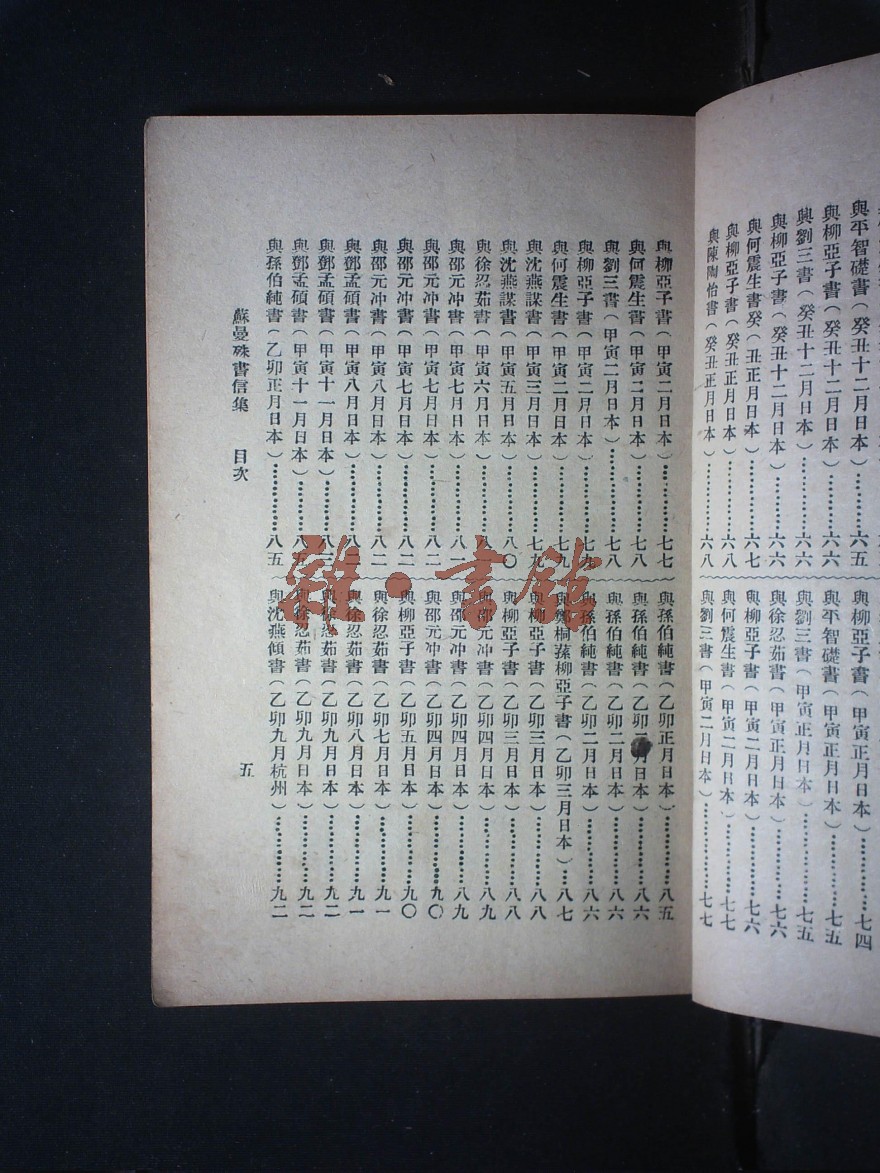 與平智礎書（癸丑十二月日本）…………六五
與柳亞子書（癸丑十二月日本）…………六六
與劉三書（癸丑十二月日本）…………六六
與柳亞子書（癸丑十二月日本）…………六六
與何震生書癸（丑正月日本）…………六七
與柳亞子書（癸丑正月日本）…………六八
與陳陶怡書（癸丑正月日本）…………六八
與柳亞子書（甲寅正月日本）…………七四
與平智礎書（甲寅正月日本）…………七五
與劉三書（甲寅正月日本）…………七五
與徐忍茹書（甲寅正月日本）…………七六
與柳亞子書（甲寅二月日本）…………七六
與何震生書（甲寅二月日本）…………七七
與劉三書（甲寅二月日本）…………七七
與柳亞子書（甲寅二月日本）…………七七
與何震生書（甲寅二月日本）…………七八
與劉三書（甲寅二月日本）…………七八
與柳亞子書（甲寅二月日本）…………七九
與何震生書（甲寅二月日本）…………七九
與沈燕謀書（甲寅三月日本）…………七九
與沈燕謀書（甲寅五月日本）…………八〇
與徐忍茹書（甲寅六月日本）…………八
與邵元冲書（甲寅七月日本）…………八一
與邵元冲書（甲寅七月日本）…………八二
與邵元冲書（甲寅七月日本）…………八二
與邵元冲書（甲寅八月日本）…………八二
與鄧孟碩書（甲寅八月日本）…………八二
與鄧孟碩書（甲寅十一月日本）…………八三
與鄧孟碩書（甲寅十一月日本）…………八五
與孫伯純書（乙卯正月日本）…………八五
與孫伯純書（乙卯正月日本）…………八五
與孫伯純書（乙卯二月日本）…………八六
與孫伯純書（乙卯二月日本）…………八六
與孫伯純書（乙卯二月日本）…………八六
與鄭桐蓀柳亞子書（乙卯三月日本）…八七
與柳亞子書（乙卯三月日本）…………八八
與柳亞子書（乙卯三月日本）…………八八
與邵元冲書（乙卯四月日本）…………八九
與邵元冲書（乙卯四月日本）…………八九
與邵元冲書（乙卯四月日本）…………九〇
與柳亞子書（乙卯五月日本）…………九〇
與徐忍茹書（乙卯七月日本）…………九一
與徐忍茹書（乙卯八月日本）…………九一
與徐忍茹書（乙卯九月日本）…………九二
與徐忍茹書（乙卯九月日本）…………九二
與沈燕傾書（乙卯九月杭州）…………九二
蘇曼殊書信集 目次
五
雜·書館